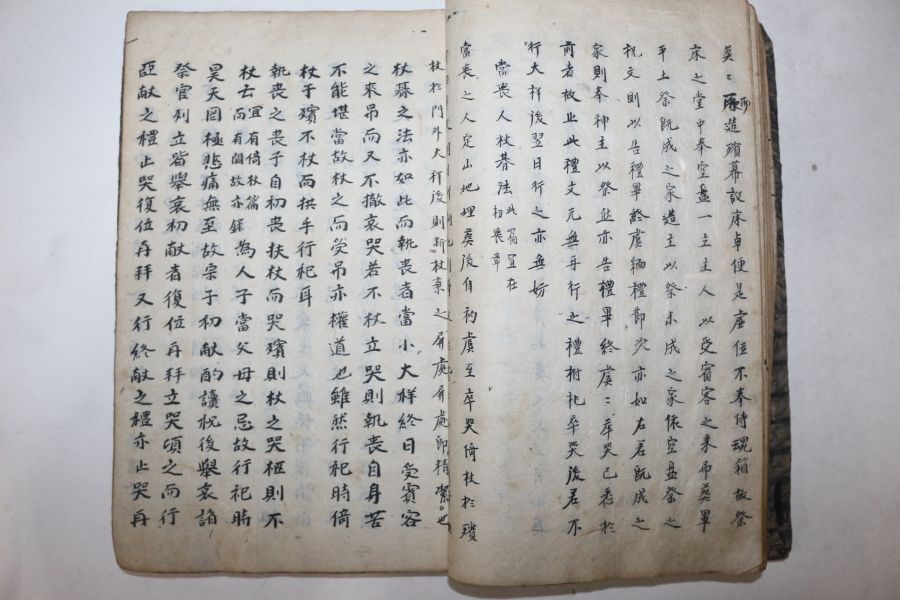 奠〻所造殯幕設床卓便是虛位不奉侍魂箱故祭
床之堂中奉空盘一主主人以受賓客之来吊葬畢
平土祭旣成之家造主以祭未成之家依空盘祭之
祝文則以告禮畢終虞緬禮節次亦如右若旣成之
家則奉神主以祭然亦告禮畢終虞〻卒哭已悉於
前者故止此禮文元無再行之禮祔祀卒哭後若不
行大祥後翌日行之亦無妨
當喪人杖朞法此篇宜在初喪章
當喪之人定山地埋葬後自初虞至卒哭倚杖於殯
杖於門外大祥後則断杖棄之屏處屏處即精潔〻也
杖朞之法亦如此而執喪者當小大祥終日受賓客
之來吊而又不撤哀哭若不杖立哭則執喪自身苦
不能堪當故杖之而受吊亦權道也雖然行祀時倚
杖于殯不杖而拱手行祀耳
執喪之喪子自初喪扶杖而哭殯則杖之哭柩則不
杖云宜有倚杖篇而有闕故亦錄為人子當父母之忌故行祀時
昊天罔極悲痛無至故宗子初献酌讀祝後擧哀諸
祭官列立皆擧哀初献者復位再拜立哭頃之而行
亞献之禮止哭復位再拜又行終献之禮亦止哭再